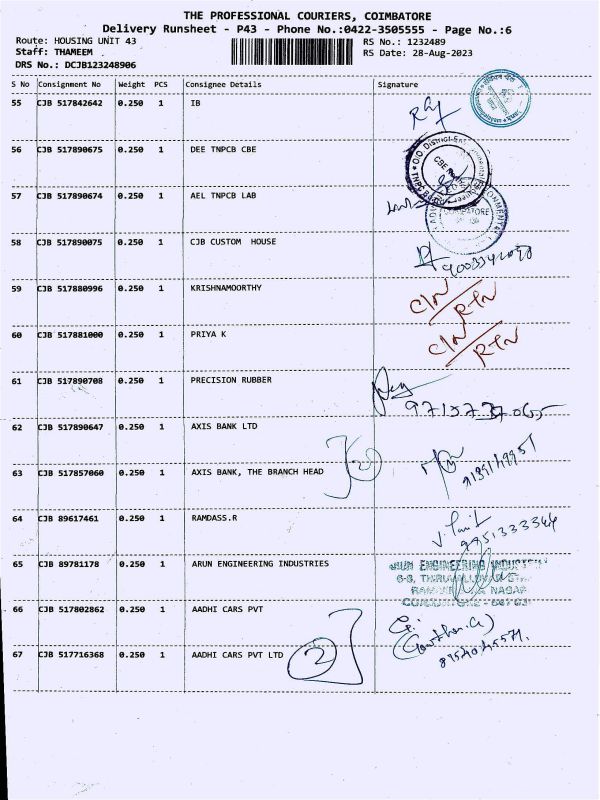 THE PROFESSIONAL COURIERS, COIMBATORE
Delivery Runsheet - P43 - Phone No.:0422-3505555 - Page No.:6
Route: HOUSING UNIT 43 RS No.: 1232489
Staff: THAMEEM RS Date: 28-Aug-2023
DRS No.: DCJB123248906
S No Consignment No Weight PCS Consignee Details Signature
55 CJB 517842642 0.250 1 IB
56 CJB 517890675 0.250 1 DEE TNPCB CBE
57 CJB 517890674 0.250 1 AEL TNPCB LAB
58 CJB 517890075 0.250 1 CJB CUSTOM HOUSE
59 CJB 517880996 0.250 1 KRISHNAMOORTHY C/N RTN
60 CJB 517881000 0.250 1 PRIYA K C/N RTN
61 CJB 517890708 0.250 1 PRECISION RUBBER
62 CJB 517890647 0.250 1 AXIS BANK LTD
63 CJB 517857060 0.250 1 AXIS BANK, THE BRANCH HEAD 2
64 CJB 89617461 0.250 1 RAMDASS.R
65 CJB 89781178 0.250 1 ARUN ENGINEERING INDUSTRIES
66 CJB 517802862 0.250 1 AADHI CARS PVT
67 CJB 517716368 0.250 1 AADHI CARS PVT LTD 2